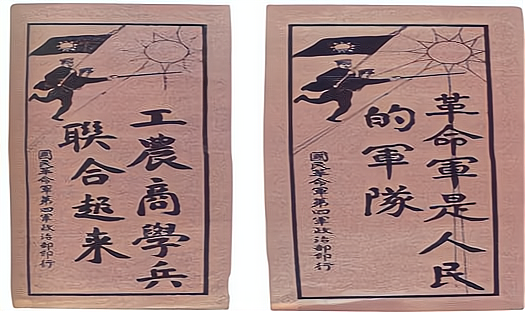 工農商學兵
聯合起来
國民革命軍第四軍政治部印行
革命軍是人民
的軍隊
國民革命軍第四軍政治部印行